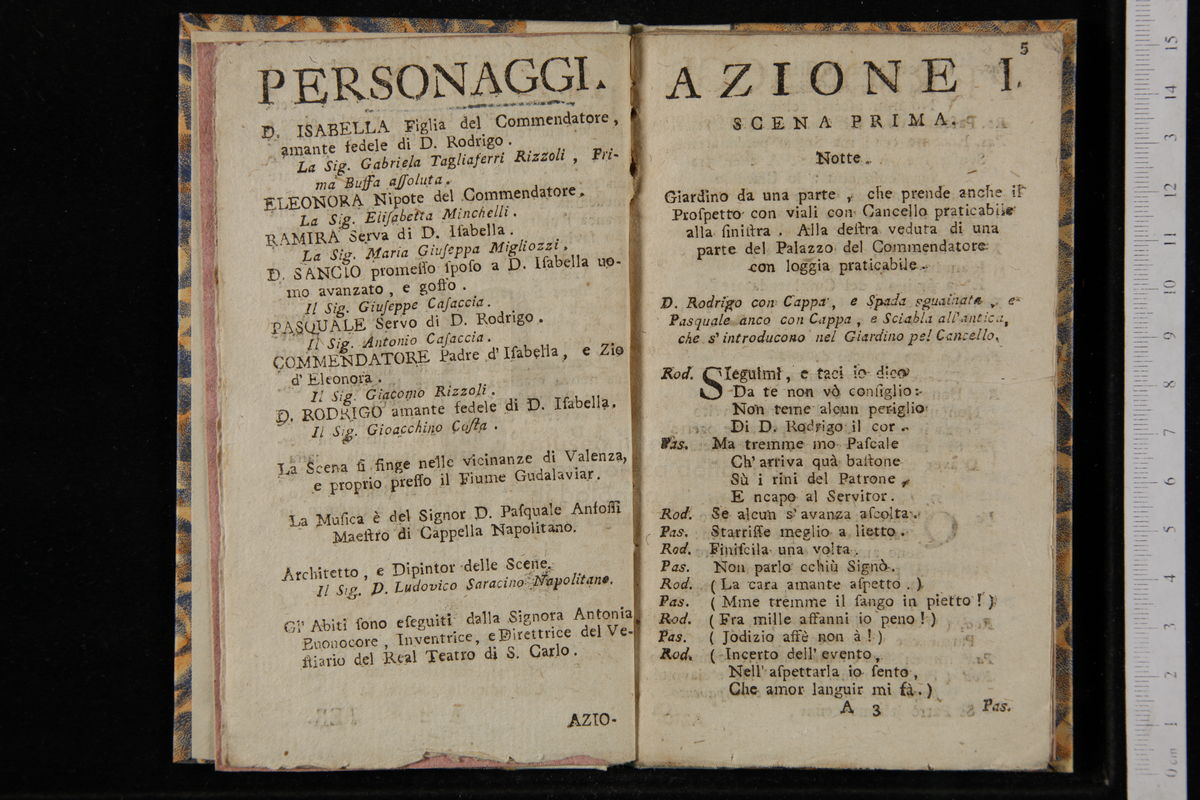 PERSONAGGI.
D. ISABELLA Figlia del Commendatore,
amante fedele di D. Rodrigo.
La Sig. Gabriela Tagliaferri Rizzoli, Pri-
ma Buffa aſſoluta.
ELEONORA Nipote del Commendatore.
La Sig. Eliſabetta Minchelli.
RAMIRA Serva di D. Iſabella.
La Sig. Maria Giuſeppa Migliozzi.
D. SANCIO promeſſo ſpoſo a D. Iſabella uo-
mo avanzato, e goffo.
Il Sig. Giuſeppe Caſaccia.
PASQUALE Servo di D. Rodrigo.
Il Sig. Antonio Caſaccia.
COMMENDATORE Padre d'Iſabella, e Zio
d'Eleonora.
Il Sig. Giacomo Rizzoli.
D. RODRIGO amante fedele di D. Iſabella.
Il Sig. Gioacchino Coſta.
La Scena ſi finge nelle vicinanze di Valenza,
e proprio preſſo il Fiume Gudalaviar.
La Muſica è del Signor D. Paſquale Anfoſſi
Maeſtro di Cappella Napolitano.
Architetto, e Dipintor delle Scene.
Il Sig. D. Ludovico Saracino Napolitano.
Gl' Abiti ſono eſeguiti dalla Signora Antonia
Buonocore, Inventrice, e Direttrice del Ve-
ſtiario del Real Teatro di S. Carlo.
AZIO-
5
AZIONE I.
SCENA PRIMA.
Notte.
Giardino da una parte, che prende anche il
Proſpetto con viali con Cancello praticabile
alla ſiniſtra. Alla deſtra veduta di una
parte del Palazzo del Commendatore
con loggia praticabile.
D. Rodrigo con Cappa, e Spada sguainata, e
Pasquale anco con Cappa, e Sciabla all'antica,
che s'introducono nel Giardino pel Cancello.
Rod. SIeguimi, e taci io dico
Da te non vò conſiglio:
Non teme alcun periglio
Di D. Rodrigo il cor.
Pas. Ma tremme mo Paſcale
Ch'arriva quà baſtone
Sù i rini del Patrone,
E ncapo al Servitor.
Rod. Se alcun s'avanza aſcolta.
Pas. Starriſſe meglio a lietto.
Rod. Finiſcila una volta.
Pas. Non parlo cchiù Signò.
Rod. (La cara amante aſpetto.)
Pas. (Mme tremme il ſango in pietto!)
Rod. (Fra mille affanni io peno!)
Pas. (Jodizio affè non à!)
Rod. (Incerto dell'evento,
Nell'aſpettarla io ſento,
Che amor languir mi fà.)
A 3 Pas.
0 cm 1 2 3 4 5 6 7 8 9 10 11 12 13 14 15